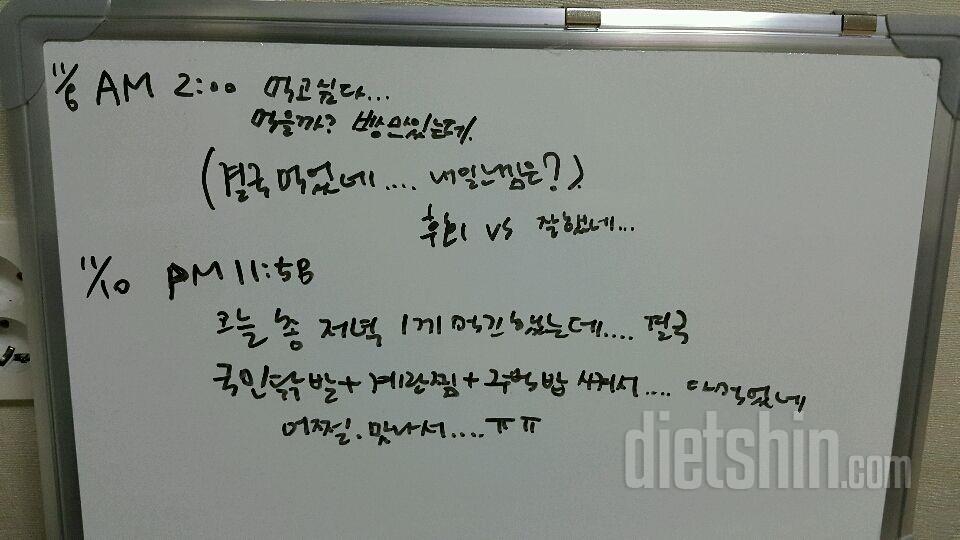 11/6 AM 2:00 먹고싶다...
먹을까? 빵맛있는데.
(결국 먹었네.... 내일느낌은?)
후회 vs 잘했네...
11/10 PM 11:58
오늘 총 저녁 1끼 먹긴했는데.... 결국
국민닭발+계란찜+주먹밥 시켜서.... 다먹었네
어쩔. 맛나서....ㅠㅠ
dietshin.com